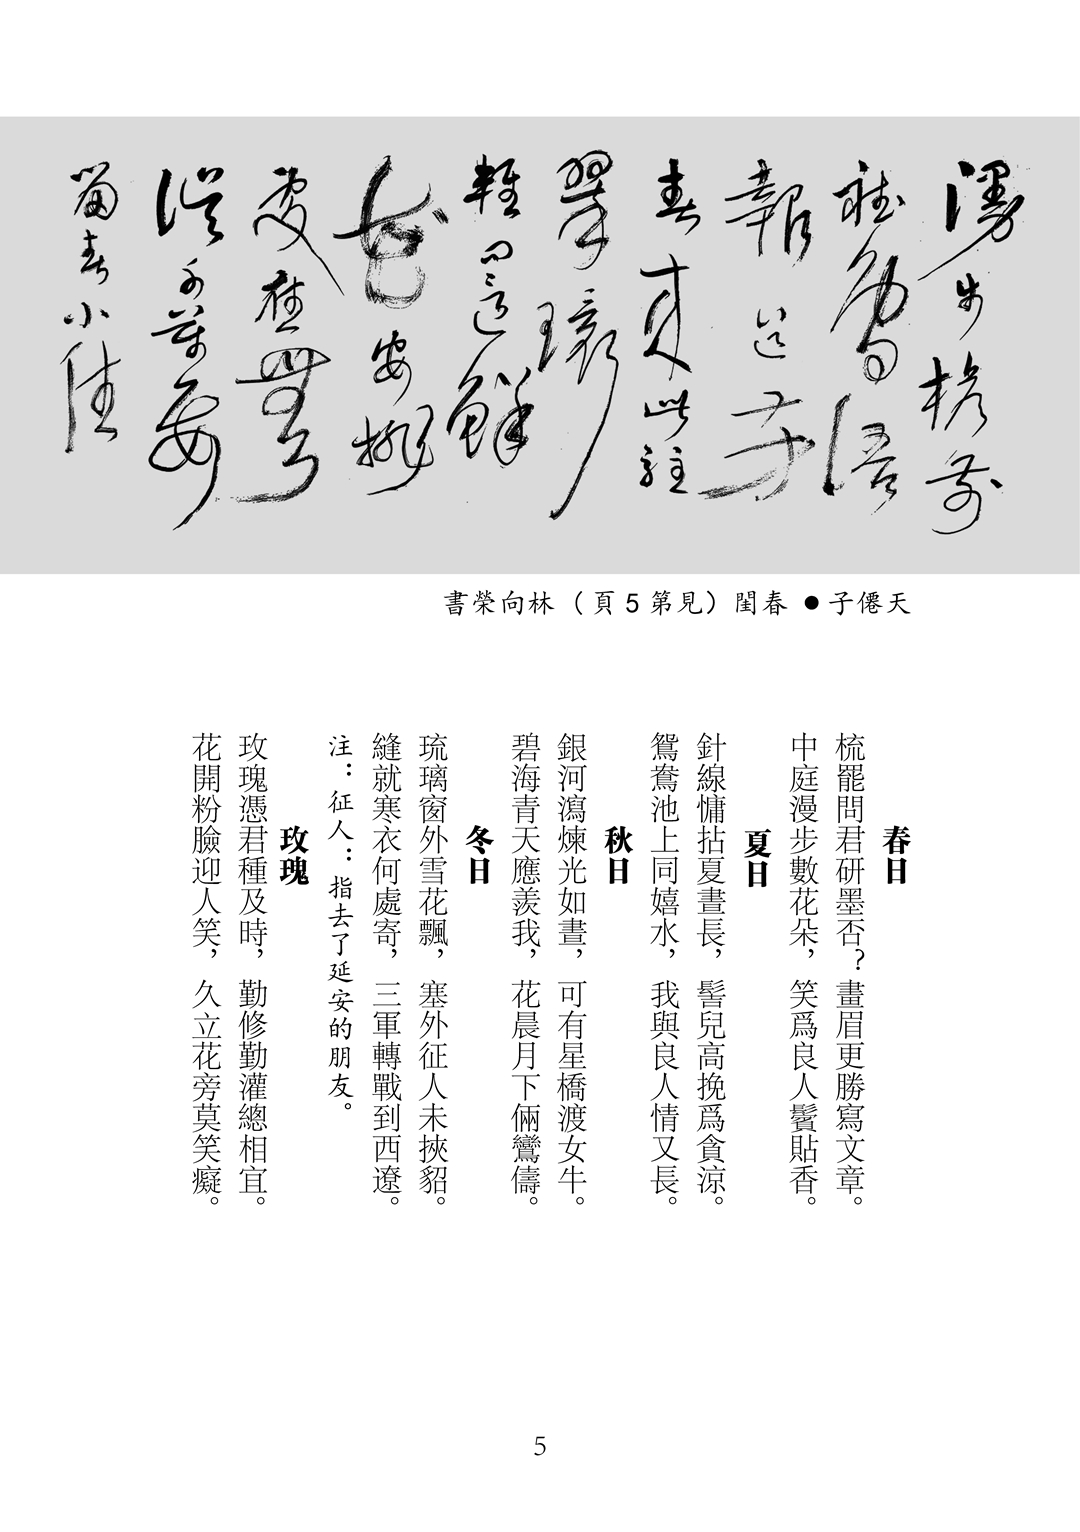 漫步檐前
報道芳
春來此駐
翠環
鮮
花安排
處應無
天僊子 ● 春閨（見第5頁） 林向榮書
春日
梳罷問君研墨否？畫眉更勝寫文章。
中庭漫步數花朵，笑爲良人鬢貼香。
夏日
針線慵拈夏晝長，髻兒高挽爲貪涼。
鴛鴦池上同嬉水，我與良人情又長。
秋日
銀河瀉煉光如晝，可有星橋渡女牛。
碧海青天應羨我，花晨月下倆鸞儔。
冬日
琉璃窗外雪花飄，塞外征人未挾貂。
縫就寒衣何處寄，三軍轉戰到西遼。
注：征人：指去了延安的朋友。
玫瑰
玫瑰憑君種及時，勤修勤灌總相宜。
花開粉臉迎人笑，久立花旁莫笑癡。
5